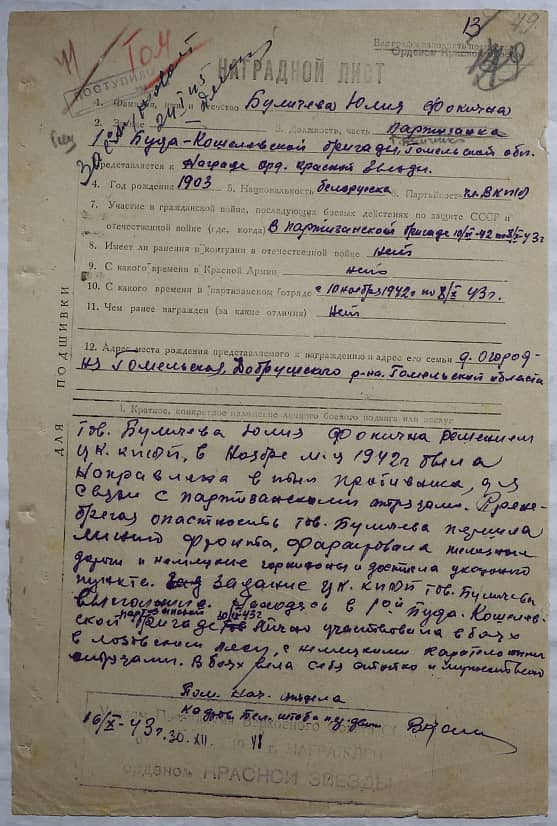 13
49.
Том
ПОСТУПИЛ
24 I 45
НАГРАДНОЙ ЛИСТ
1. Фамилия, имя и отчество Буличева Юлия Фокична
2. Звание 3. Должность, часть Партизанка
1ой Буда-Кошелевской бригады, Гомельской обл.
Представляется к Награде орд. Красной Звезды.
4. Год рождения 1903 5. Национальность белорусска 6. Партийность чл. ВКП(б)
7. Участие в гражданской войне, последующих боевых действиях по защите СССР и
отечественной войне (где, когда) В партизанской бригаде 10/XI-42 по 8/X-43 г
8. Имеет ли ранения и контузии в отечественной войне нет
9. С какого времени в Красной Армии нет
10. С какого времени в партизанском отряде с 10 ноября 1942 г по 8/X 43 г.
11. Чем ранее награжден (за какие отличия) Нет
12. Адрес места рождения представляемого к награждению и адрес его семьи д. Огород-
ня Гомельская, Добрушского р-на. Гомельской области
ДЛЯ ПОДШИВКИ
1. Краткое, конкретное изложение личного боевого подвига или заслуг
Тов. Буличева Юлия Фокична решением
ЦК КП(б)Б, в Ноябре м-ц 1942 г была
Направлена в тыл противника, для
Связи с партизанскими отрядами. Прене-
брегая опасностью тов. Буличева перешла
линию фронта, немецкие
дороги и немецкие гарнизоны и достигла указанного
пункта. Задание ЦК КП(б)Б тов. Буличева
выполнила. Находясь в 1ой Буда-Кошелев-
ской партизанской бригаде 10/IX-43 г лично участвовала в боях
в лесу, с немецкими карательными
отрядами. В боях вела себя стойко и мужественно
Пом. нач. отдела
Кадров Бел. штаба п/движ
16/X-43 г.
30. XII. 48 г. НАГРАЖДЕН
орденом КРАСНОЙ ЗВЕЗДЫ